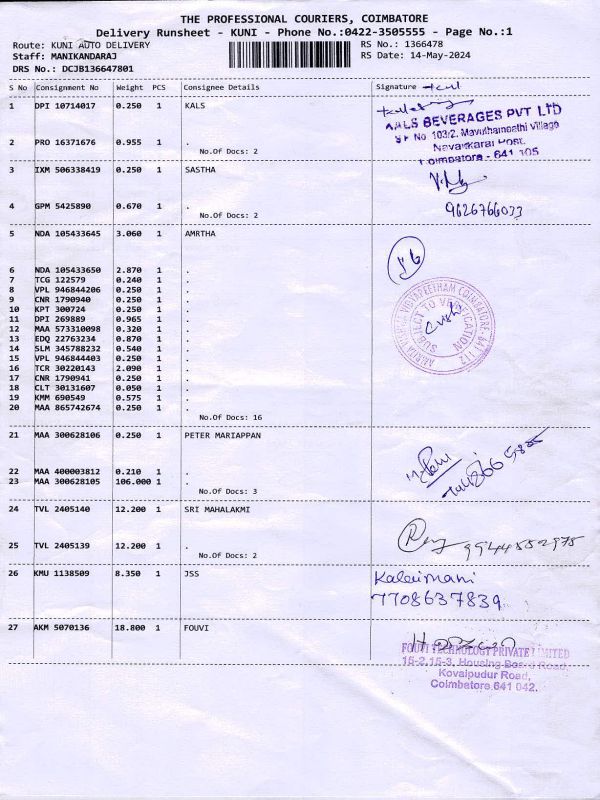 THE PROFESSIONAL COURIERS, COIMBATORE
Delivery Runsheet - KUNI - Phone No.:0422-3505555 - Page No.:1
Route: KUNI AUTO DELIVERY RS No.: 1366478
Staff: MANIKANDARAJ RS Date: 14-May-2024
DRS No.: DCJB136647801
S No Consignment No Weight PCS Consignee Details Signature
1 DPI 10714017 0.250 1 KALS
KALS BEVERAGES PVT LTD
SF No 103/2, Mavuthampathi Village
Navakkarai Post,
Coimbatore - 641 105
2 PRO 16371676 0.955 1 .
No.Of Docs: 2
3 IXM 506338419 0.250 1 SASTHA
4 GPM 5425890 0.670 1 . 9626766033
No.Of Docs: 2
5 NDA 105433645 3.060 1 AMRTHA
16
6 NDA 105433650 2.870 1 .
7 TCG 122579 0.240 1 .
8 VPL 946844206 0.250 1 .
9 CNR 1790940 0.250 1 .
10 KPT 300724 0.250 1 .
11 DPI 269889 0.965 1 .
12 MAA 573310098 0.320 1 .
13 EDQ 22763234 0.870 1 .
14 SLM 345788232 0.540 1 .
15 VPL 946844403 0.250 1 .
16 TCR 30220143 2.090 1 .
17 CNR 1790941 0.250 1 .
18 CLT 30131607 0.050 1 .
19 KMM 690549 0.575 1 .
20 MAA 865742674 0.250 1 .
No.Of Docs: 16
AMRITA VISHWA VIDYAPEETHAM COIMBATORE 641 112
SUBJECT TO VERIFICATION
21 MAA 300628106 0.250 1 PETER MARIAPPAN
22 MAA 400003812 0.210 1 .
23 MAA 300628105 106.000 1 .
No.Of Docs: 3
24 TVL 2405140 12.200 1 SRI MAHALAKMI
9944552975
25 TVL 2405139 12.200 1 .
No.Of Docs: 2
26 KMU 1138509 8.350 1 JSS Kaleimani
7708637839
27 AKM 5070136 18.800 1 FOUVI
FOUVI TECHNOLOGY PRIVATE LIMITED
15-2,15-3, Housing Board Road,
Kovaipudur Road,
Coimbatore 641 042.